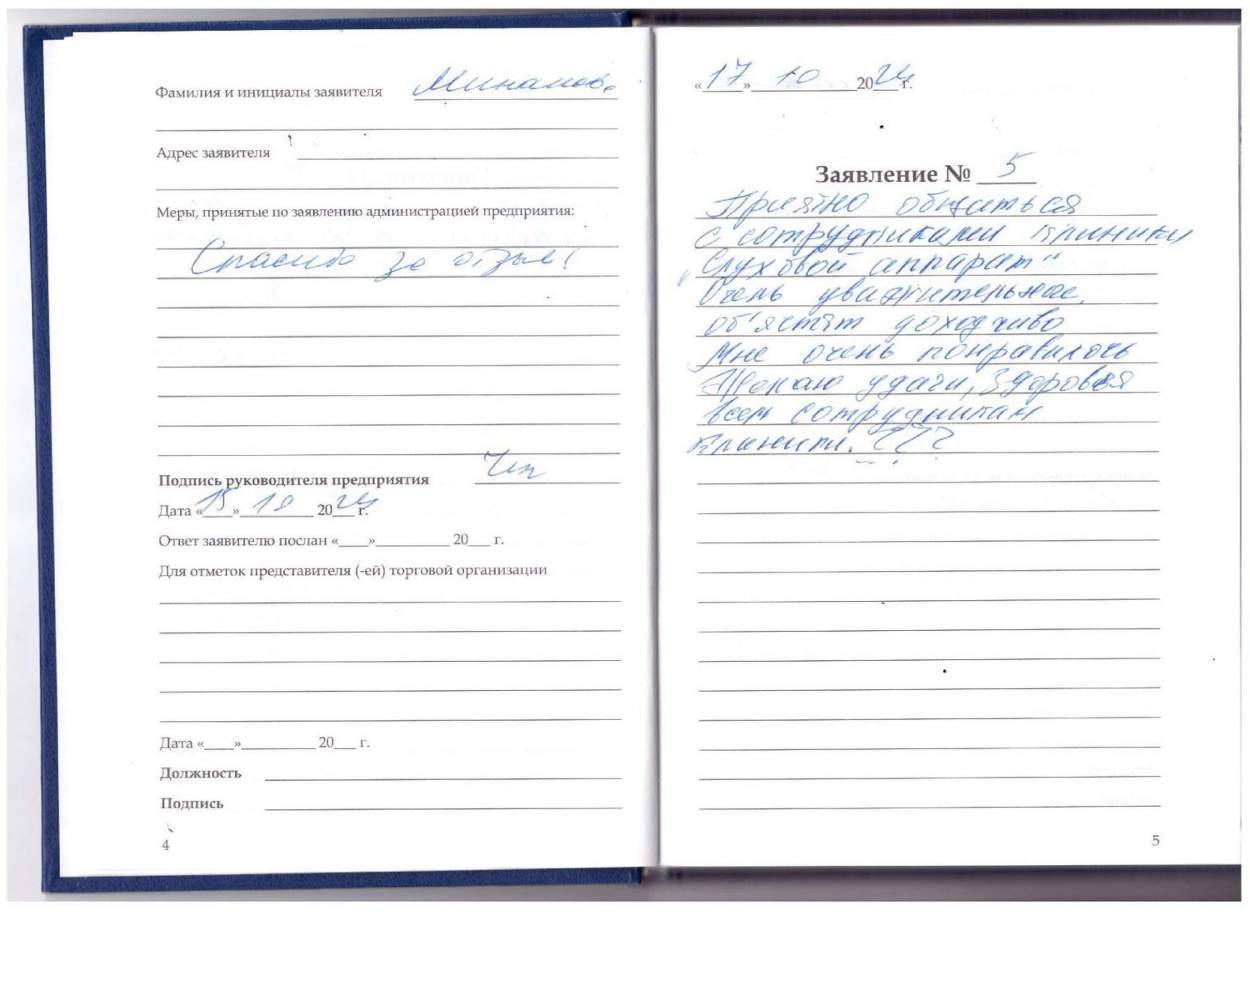 Фамилия и инициалы заявителя
Адрес заявителя
Меры, принятые по заявлению администрацией предприятия:
Спасибо за отзыв!
Подпись руководителя предприятия
Дата «15» 10 2024 г.
Ответ заявителю послан «____»__________ 20___ г.
Для отметок представителя (-ей) торговой организации
Дата «____»__________ 20___ г.
Должность
Подпись
4
«17» 10 2024 г.
Заявление № 5
Приятно общаться
с сотрудниками клиники
"Слуховой аппарат"
Очень уважительные,
об'яснят доходчиво
Мне очень понравилось
Желаю удачи, Здоровья
всем сотрудникам
клиники.
5